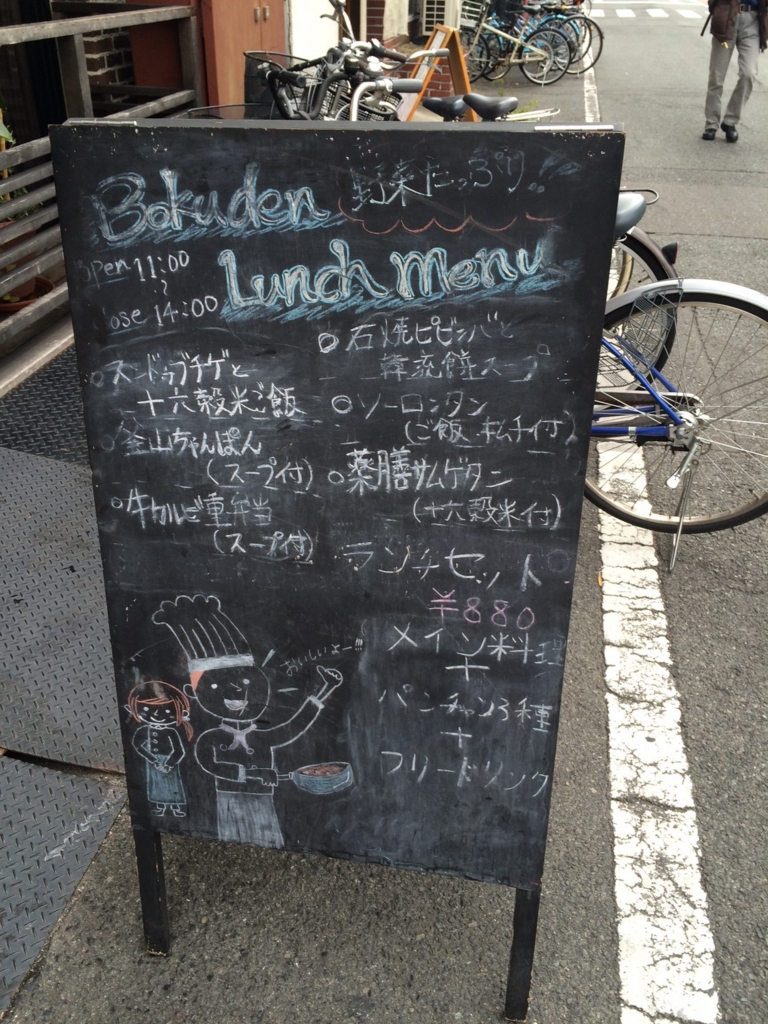 Bokuden 野菜たっぷり!!
open 11:00
〜
close 14:00
Lunch menu
○スードゥブチゲと
十六穀米ご飯
○釜山ちゃんぽん
(スープ付)
○牛カルビ重弁当
(スープ付)
○石焼ピビンバと
韓流餅スープ
○ソーロンタン
(ご飯、キムチ付)
○薬膳サムゲタン
(十六穀米付)
ランチセット
¥880
メイン料理
+
パンチャン3種
+
フリードリンク
おいしいよー!!!